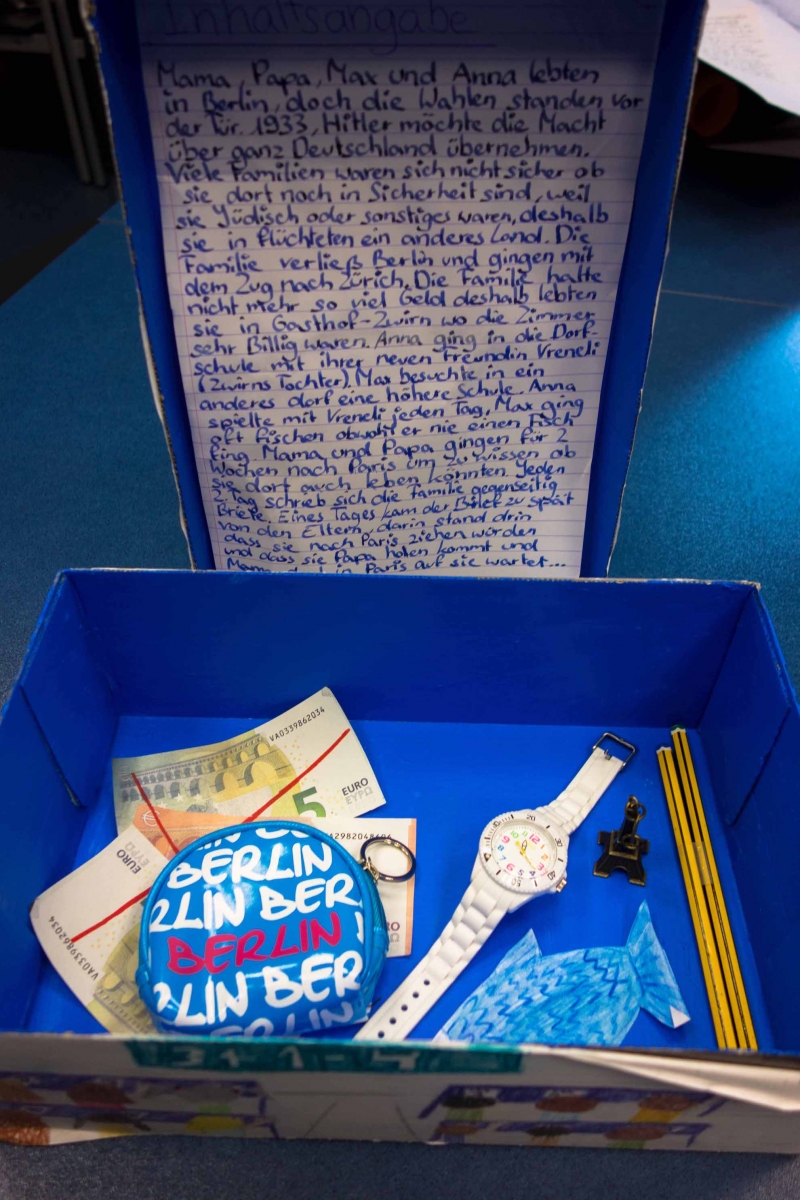 Inhaltsangabe
Mama, Papa, Max und Anna lebten
in Berlin, doch die Wahlen standen vor
der Tür. 1933, Hitler möchte die Macht
über ganz Deutschland übernehmen.
Viele Familien waren sich nicht sicher ob
sie dort noch in Sicherheit sind, weil
sie Jüdisch oder sonstiges waren, deshalb
sie in flüchteten ein anderes Land. Die
Familie verließ Berlin und gingen mit
dem Zug nach Zürich. Die Familie hatte
nicht mehr so viel Geld deshalb lebten
sie in Gasthof-Zwirn wo die Zimmer
sehr Billig waren. Anna ging in die Dorf-
schule mit ihrer neuen Freundin Vreneli
(Zwirns Tochter). Max besuchte in ein
anderes dorf eine höhere Schule. Anna
spielte mit Vreneli jeden Tag, Max ging
oft fischen obwohl er nie einen Fisch
fing. Mama und Papa gingen für 2
Wochen nach Paris um zu wissen ob
sie dort auch leben könnten. Jeden
2 Tag schrieb sich die familie gegenseitig
Briefe. Eines Tages kam der Brief zu spät
von den Eltern, darin stand drin
dass sie nach Paris ziehen würden
und dass sie Papa holen kommt und
Mama in Paris auf sie wartet...
VA0339862034
5
EURO
ΕΥΡΩ
EURO
ΕΥΡΩ
VA0339862034
BERLIN
RLIN BER
BERLIN
RLIN BER
BERLIN